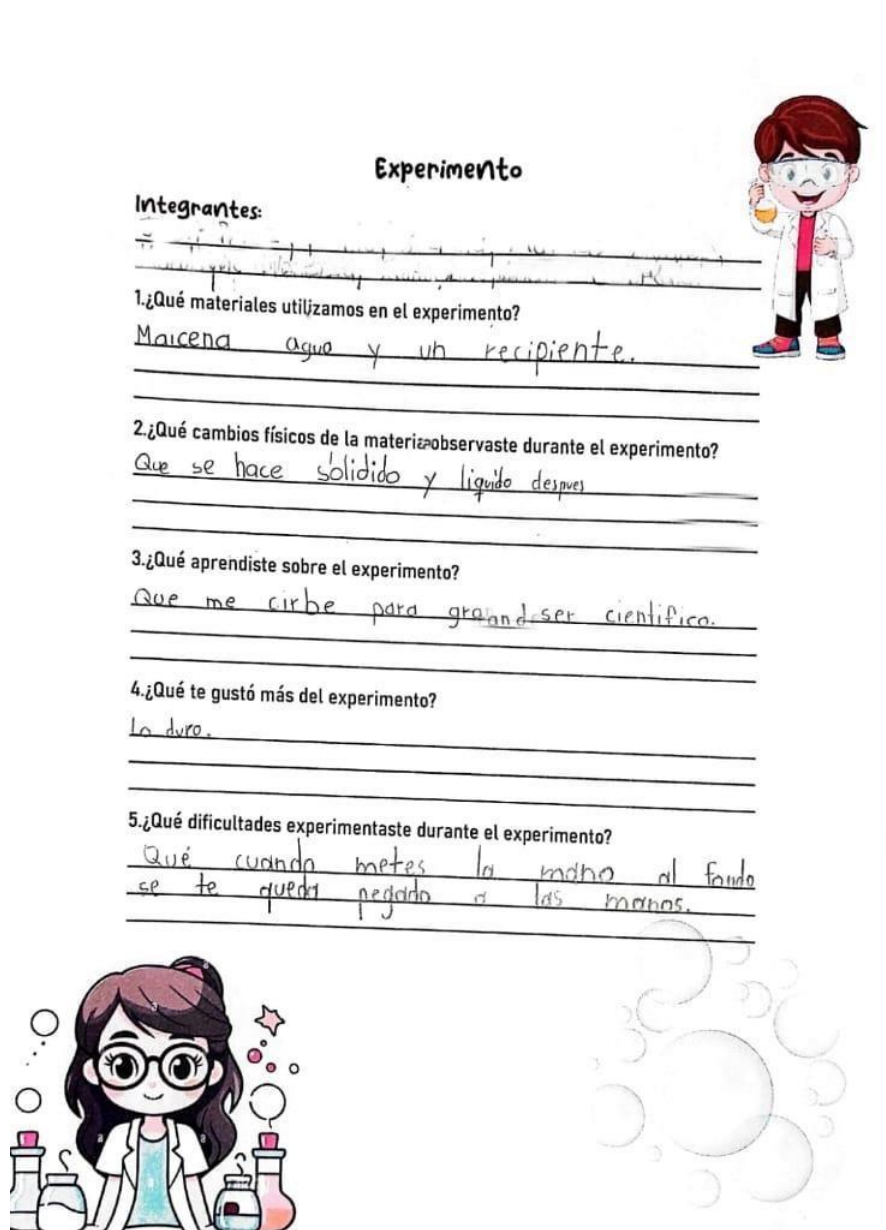 Experimento
Integrantes:
1.¿Qué materiales utilizamos en el experimento?
Maicena agua y un recipiente.
2.¿Qué cambios físicos de la materia observaste durante el experimento?
Que se hace sólidido y liquido despues
3.¿Qué aprendiste sobre el experimento?
Que me cirbe para graand ser cientifica.
4.¿Qué te gustó más del experimento?
Lo duro.
5.¿Qué dificultades experimentaste durante el experimento?
Qué cuando metes la mano al fondo
se te queda pegado a las manos.